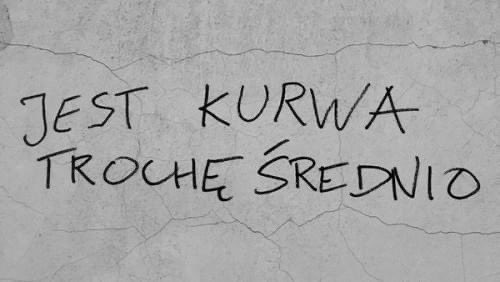 JEST KURWA
TROCHĘ ŚREDNIO